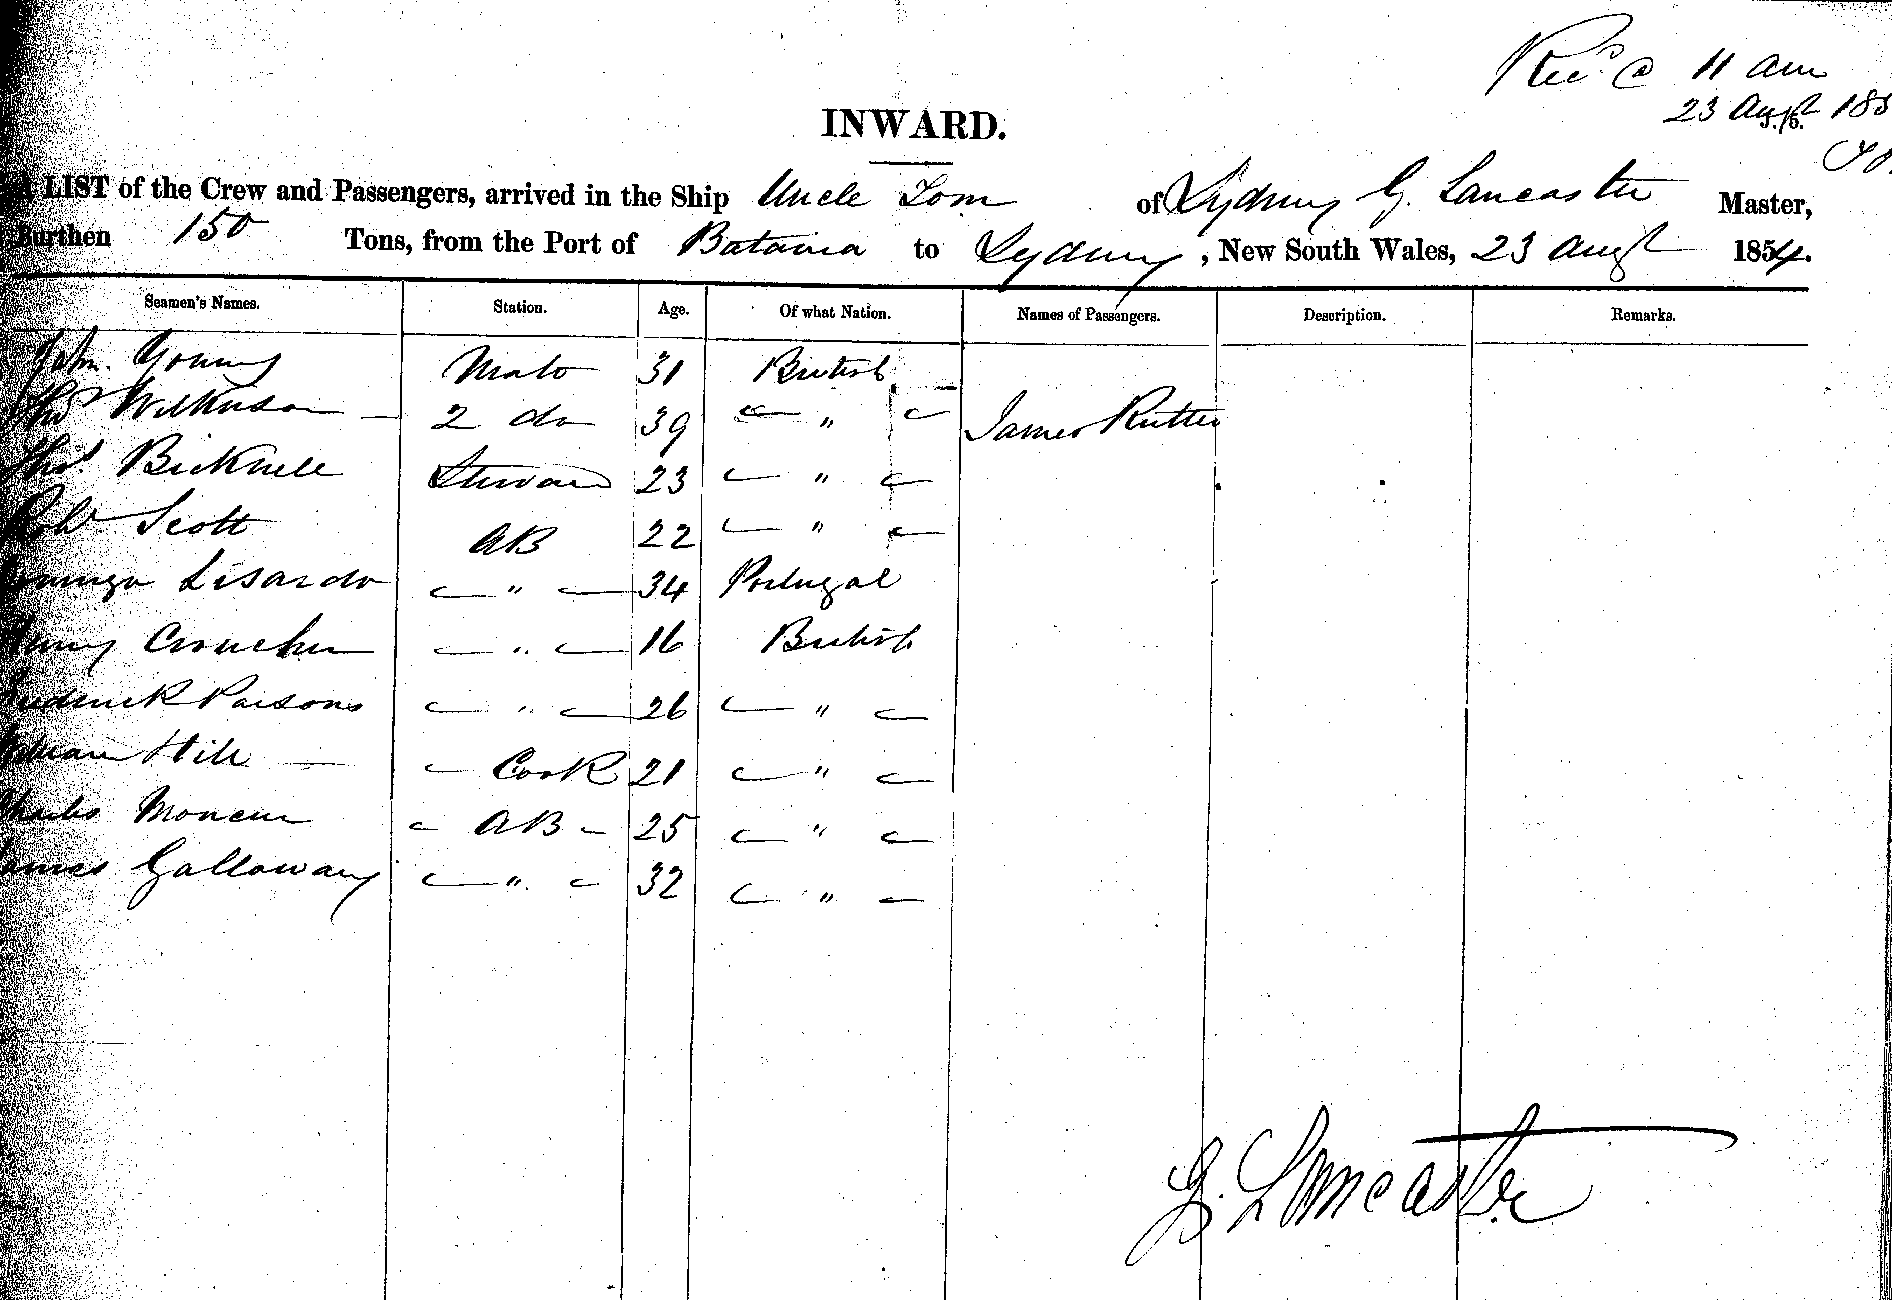 Recd @ 11 am
23 Augt 185
INWARD.
A LIST of the Crew and Passengers, arrived in the Ship Uncle Tom of Sydney G. Lancaster Master,
Burthen 150 Tons, from the Port of Batavia to Sydney, New South Wales, 23 Augt 1854.
Seamen's Names. Station. Age. Of what Nation. Names of Passengers. Description. Remarks.
John Young Mate 31 British
Thos Wilkinson 2 do 39 " James Rutter
Thos Bicknell Steward 23 "
Robt Scott AB 22 "
Lisardo " 34 Portugal
Henry Croucher " 16 British
Frederick Parsons " 26 "
William Hill Cook 21 "
Charles Moncur AB 25 "
James Galloway " 32 "
G. Lancaster